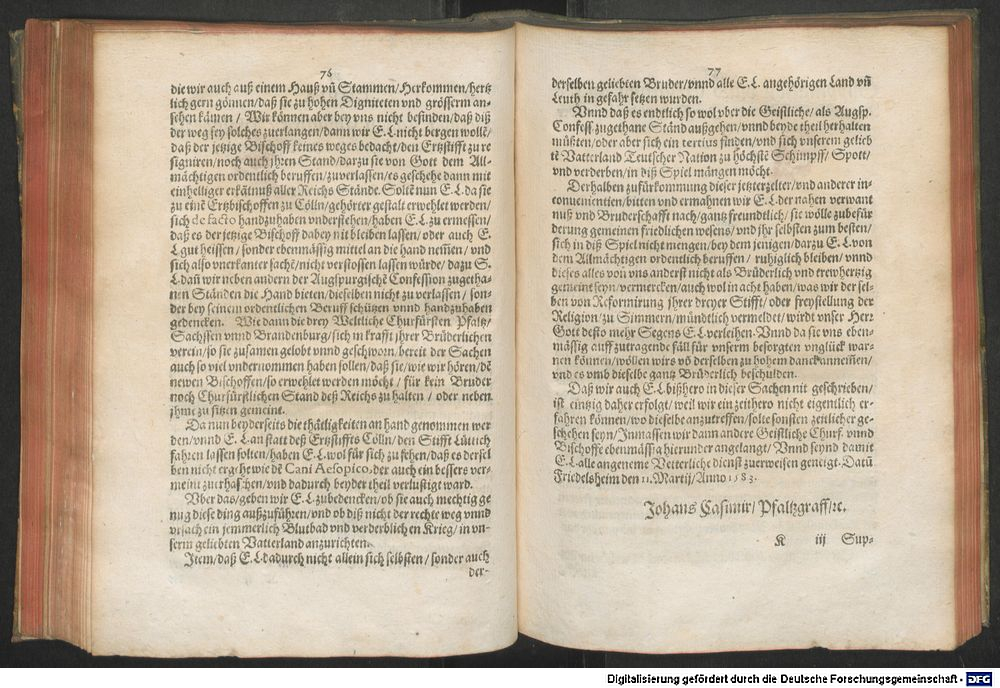 76
die wir auch auß einem Hauß vñ Stammen/Herkommen/hertz
lich gern gönnen/daß sie zu hohen Digniteten vnd grösserm an-
sehen kämen / Wir können aber bey vns nicht befinden/daß diß
der weg sey solches zuerlangen/dann wir E.L. nicht bergen wollē/
daß der jetzige Bischoff keines weges bedacht/den Ertzstifft zu re
signiren/noch auch jhren Stand/darzu sie von Gott dem All-
mächtigen ordentlich beruffen/zuverlassen/es geschehe dann mit
einhelliger erkätnuß aller Reichs Stände. Soltē nun E.L. da sie
zu einē Ertzbischoffen zu Cölln/gehörter gestalt erwehlet werden/
sich de facto handzuhaben vnderstehen/haben E.L. zu ermessen/
daß es der jetzige Bischoff dabey nit bleiben lassen/oder auch E.
L. gut heissen/sonder ebenmässig mittel an die hand nem̃en/vnd
sich also vnerkanter sachē/nicht verstossen lassen würde/dazu S.
L. dañ wir neben andern der Augspurgischē Confession zugetha-
nen Ständen die Hand bieten/dieselben nicht zu verlassen/son-
der bey seinem ordentlichen Beruff schützen vnnd handzuhaben
gedencken. Wie dann die drey Weltliche Churfürsten Pfaltz/
Sachssen vnnd Brandenburg/sich in krafft jhrer Brüderlichen
verein/so sie zusamen gelobt vnnd geschworn/bereit der Sachen
auch so viel vndernommen haben sollen/daß sie/wie wir hören/dē
newen Bischoffen/so erwehlet werden möcht/für kein Bruder
noch Churfürstlichen Stand deß Reichs zu halten/oder neben
jhme zu sitzen gemeint.
Da nun beyderseits die thätligkeiten an hand genommen wer
den/vnnd E.L. an statt deß Ertzstiffts Cölln/den Stifft Lüttich
fahren lassen solten/haben E.L. wol für sich zu sehen/daß es dersel
ben nicht ergehe wie dē Cani Aesopico, der auch ein bessere ver-
meint zuerhaschen/vnd dadurch beyder theil verlustigt ward.
Vber das/geben wir E.L. zubedencken/ob sie auch mechtig ge
nug diese ding außzuführen/vnd ob diß nicht der rechte weg vnnd
vrsach ein jemmerlich Blutbad vnd verderblichen Krieg/in vn-
serm geliebten Vatterland anzurichten.
Item/daß E.L. dadurch nicht allein sich selbsten/sonder auch
der-
77
derselben geliebten Bruder/vnnd alle E.L. angehörigen Land vñ
Leuth in gefahr setzen wurden.
Vnnd daß es endtlich so wol vber die Geistliche/als Augsp.
Confess. zugethane Ständ außgehen/vnnd beyde theil herhalten
müßten/oder aber sich ein tertius finden/vnd sich vnserem gelieb
tē Vatterland Teutscher Nation zu höchstē Schimpff/Spott/
vnd verderben/in diß Spiel mängen möcht.
Derhalben zufürkommung dieser jetzterzelter/vnd anderer in-
conuenientien/bitten vnd ermahnen wir E.L. der nahen verwant
nuß vnd Bruderschafft nach/gantz freundtlich/sie wölle zubefür
derung gemeinen friedlichen wesens/vnd jhr selbsten zum besten/
sich in diß Spiel nicht mengen/bey dem jenigen/darzu E.L. von
dem Allmächtigen ordentlich beruffen/ruhiglich bleiben/vnnd
dieses alles von vns anderst nicht als Brüderlich vnd trewhertzig
gemeint seyn/vermercken/auch wol in acht haben/was wir dersel-
ben von Reformirung jhrer dreyer Stifft/oder freystellung der
Religion zu Simmern/mündtlich vermeldet/wirdt vnser Herr
Gott desto mehr Segens E.L. verleihen. Vnnd da sie vns eben-
mässig auff zutragende fäll für vnserm besorgten vnglück war-
nen können/wöllen wirs vō derselben zu hohem danck annem̃en/
vnd es vmb dieselbe gantz Brüderlich beschulden.
Daß wir auch E.L. bißhero in dieser Sachen nit geschrieben/
ist eintzig daher erfolgt/weil wir ein zeithero nicht eigentlich er-
fahren können/wo dieselbe anzutreffen/solte sonsten zeitlicher ge-
schehen seyn/Inmassen wir dann andere Geistliche Churf. vnnd
Bischoffe ebenmässig hierunder angelangt/Vnnd seynd damit
E.L. alle angeneme Vetterliche dienst zuerweisen geneigt. Datū
Friedelsheim den 11. Martij/Anno 1583.
Johans Casimir/Pfaltzgraff/ꝛc.
K iij Sup-
Digitalisierung gefördert durch die Deutsche Forschungsgemeinschaft - DFG